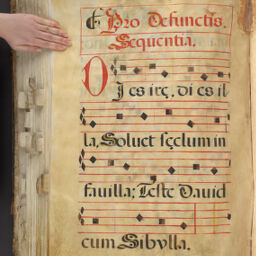 Pro Defunctis.
Sequentia.
Dies irę, dies il
la, Soluet sęclum in
fauilla; Teste Dauid
cum Sibylla.